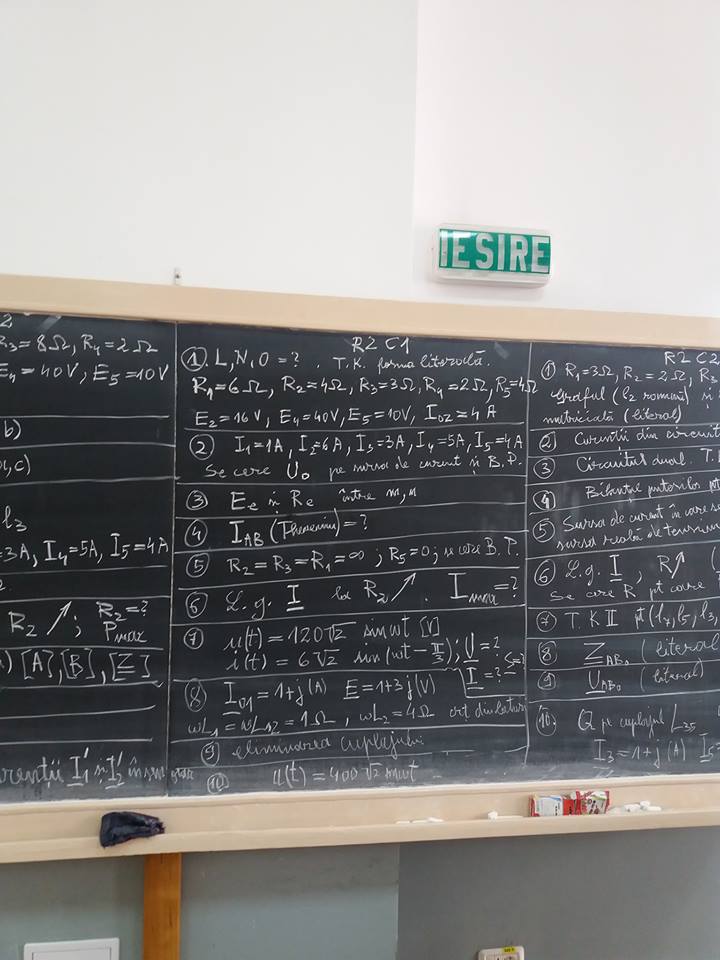 IESIRE
2
R3 = 8Ω, R4 = 2Ω
E4 = 40V, E5 = 10V
b)
a, c)
l3
=3A, I4=5A, I5=4A
R2 ↗ ; R2=?
Pmax
) [A], [B], [Z]
I1' și I2' în
R2 C1
① L, N, O = ? . T.K. forma literală.
R1=6Ω, R2=4Ω, R3=3Ω, R4=2Ω, R5=4Ω
E2=16V, E4=40V, E5=10V, I02=4A
② I1=1A, I2=6A, I3=3A, I4=5A, I5=4A
Se cere U0 pe sursa de curent și B.P.
③ Ee și Re între m, n
④ IAB (Thevenin) = ?
⑤ R2=R3=R1=∞ ; R5=0; se cere B.P.
⑥ L.g. I la R2 ↗. Imax=?
⑦ u(t) = 120√2 sin ωt [V]
i(t) = 6√2 sin(ωt − π/3); U=? I=? S=?
⑧ I01=1+j (A) E=1+3j (V)
ωL1=ωL12=1Ω, ωL2=4Ω
⑨ eliminarea cuplajului
⑩ u(t) = 400√2 sin ωt
R2 C2
① R1=3Ω, R2=2Ω, R3
Graful (l2 ramură) și
matricială (literal)
② Curenții din circuit
③ Circuitul dual. T.
④ Bilanțul puterilor pt
⑤ Sursa de curent în care se
sursa reală de tensiune
⑥ L.g. I, R↗
Se cere R pt care
⑦ T.K II pt (l4, l5, l3,
⑧ ZAB0 (literal
⑨ UAB0 (literal)
⑩ Q pe cuplajul L35
I3=1+j (A) I5